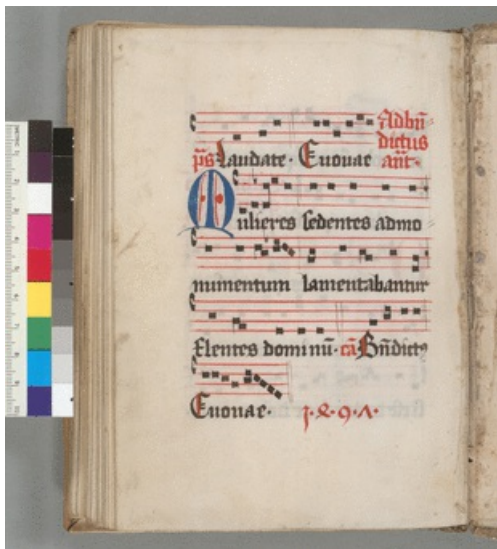 Ad bn̄
dictus
p̄s Laudate · Euouae ant̄·
Mulieres sedentes ad mo
numentum lamentabantur
Flentes dominū· cā Bn̄dictꝰ
Euouae·